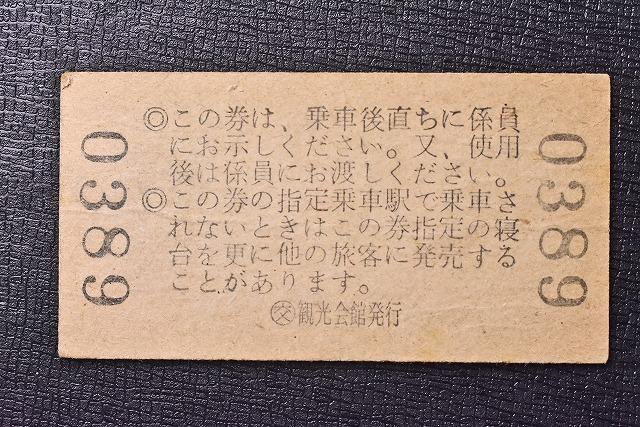 ◎この券は、乗車後直ちに係員
にお示しください。又、使用
後は係員にお渡しください。
◎この券の指定乗車駅で乗車さ
れないときはこの指定の寝
台を更に他の旅客に発売する
ことがあります。
㊋観光会館発行
0389
0389